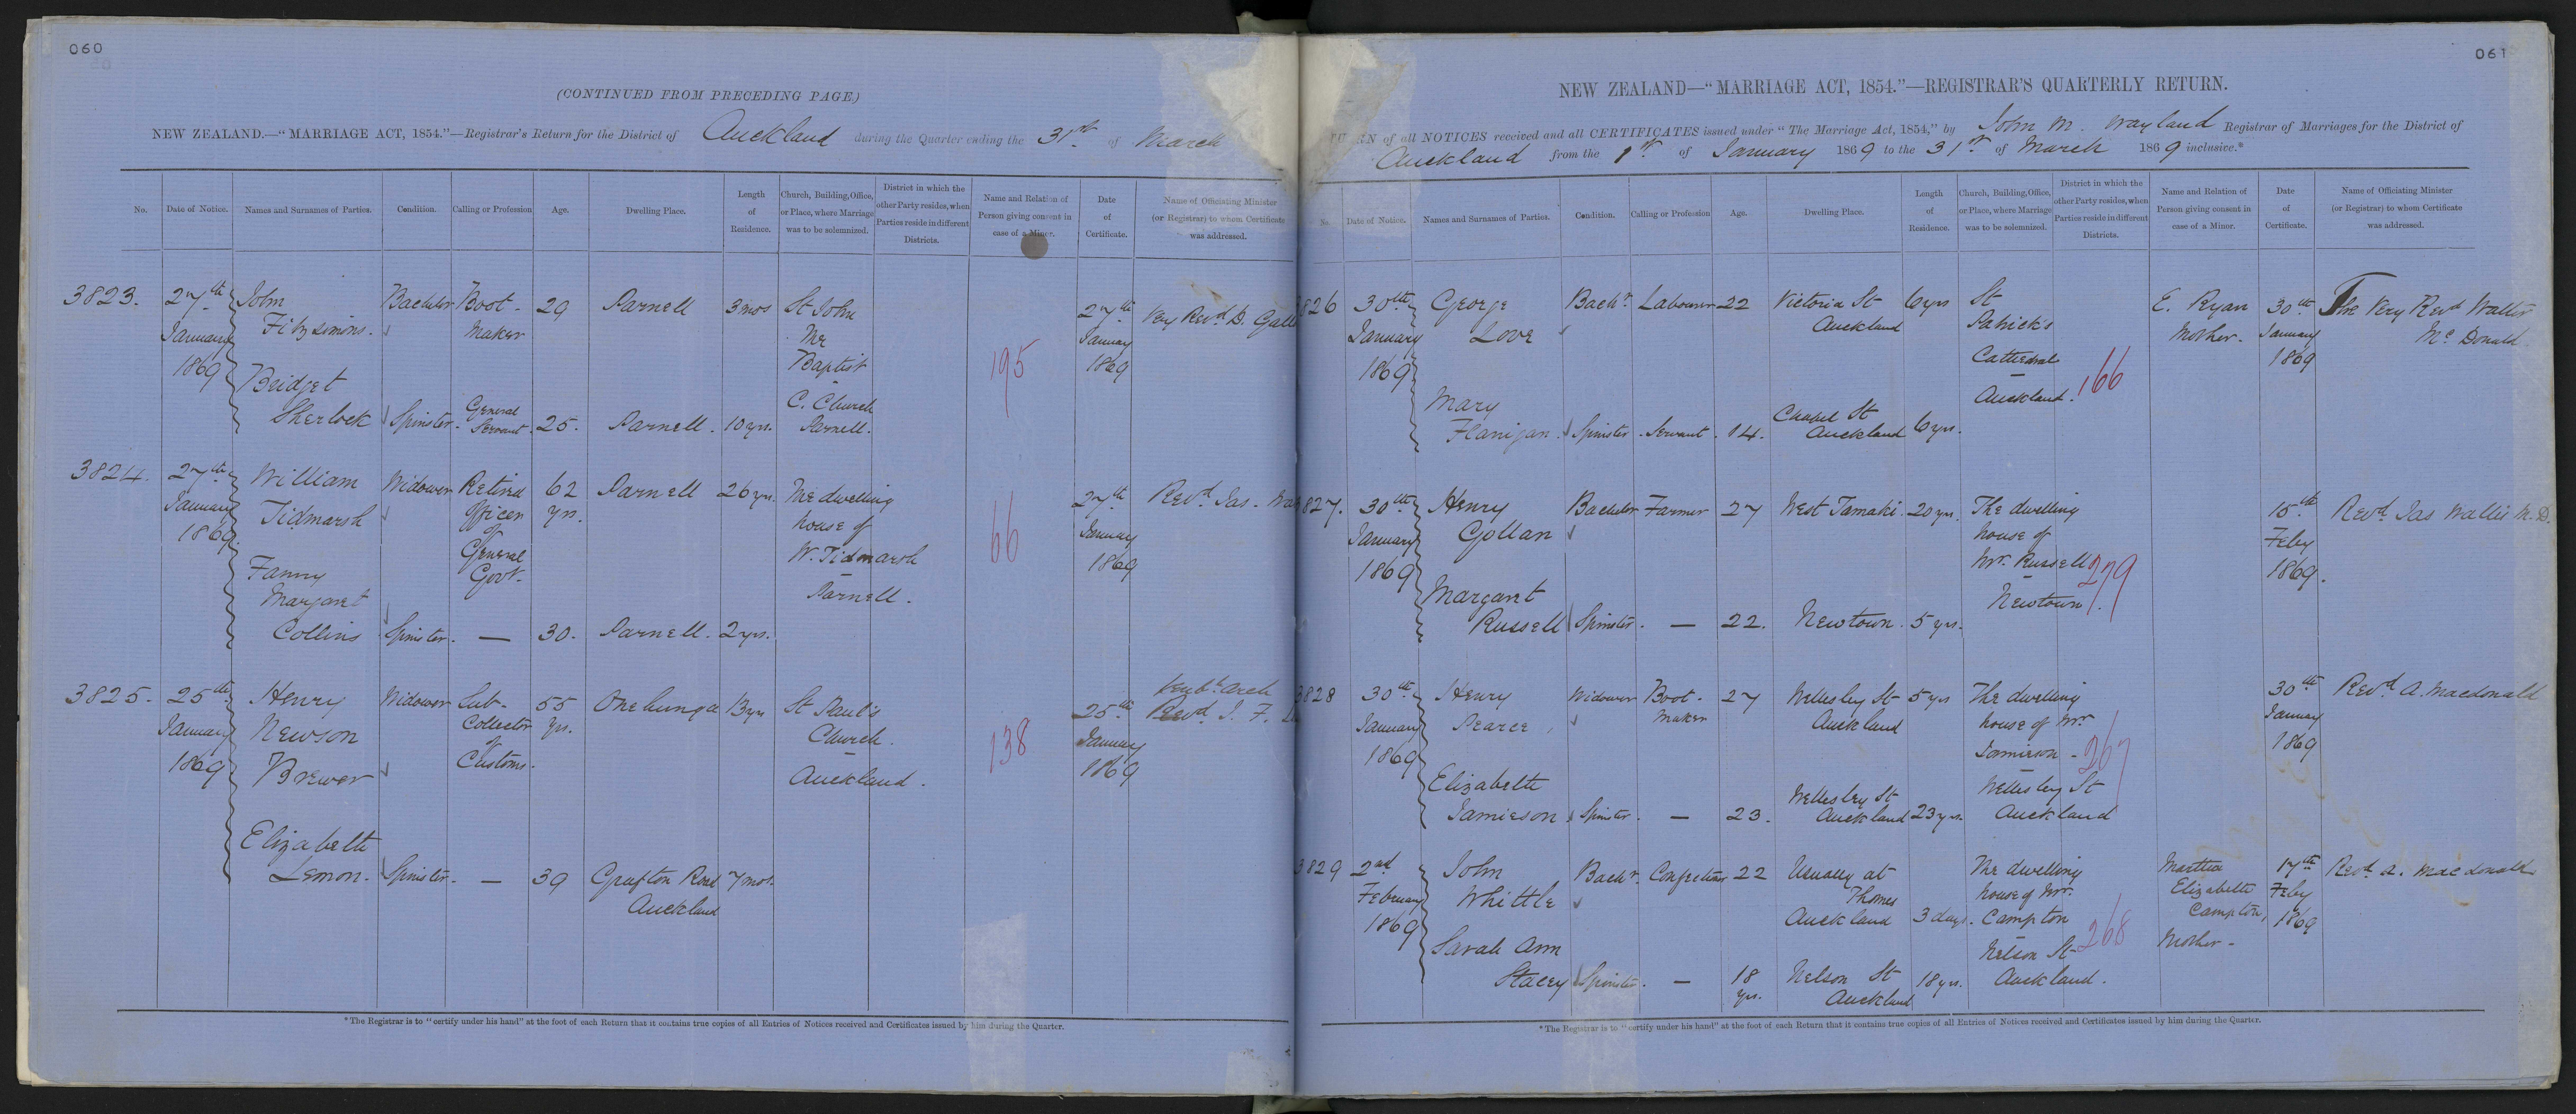 060
(CONTINUED FROM PRECEDING PAGE)
NEW ZEALAND.—"MARRIAGE ACT, 1854."—Registrar's Return for the District of Auckland during the Quarter ending the 31st of March
No. Date of Notice. Names and Surnames of Parties. Condition. Calling or Profession Age. Dwelling Place. Length of Residence. Church, Building, Office, or Place, where Marriage was to be solemnized. District in which the other Party resides, when Parties reside in different Districts. Name and Relation of Person giving consent in case of a Minor. Date of Certificate. Name of Officiating Minister (or Registrar) to whom Certificate was addressed.
3823. 27th John Bachelor Boot- 29 Parnell 3 mos St John 27th Very Revd D. Gall
January Fitzsimons. Maker The January
1869 Baptist 195 1869
Bridget C. Church
Sherlock Spinster. General Servant. 25. Parnell. 10 yrs. Parnell.
3824. 27th William Widower Retired 62 Parnell 26 yrs. The dwelling 27th Revd Jas. Wal
January Tidmarsh Officer yrs. house of January
1869. of General W. Tidmarsh 66 1869
Fanny Govt. Parnell.
Margaret
Collins Spinster. — 30. Parnell. 2 yrs.
3825. 25th Henry Widower Sub- 55 Onehunga 13 yrs St Paul's 25th Venble Arch
January Newson Collector yrs. Church. January Revd J. F.
1869 Brewer of Customs. Auckland. 138 1869
Elizabeth
Lemon. Spinster. — 39 Grafton Road 7 mos.
Auckland
*The Registrar is to "certify under his hand" at the foot of each Return that it contains true copies of all Entries of Notices received and Certificates issued by him during the Quarter.
061
NEW ZEALAND—"MARRIAGE ACT, 1854."—REGISTRAR'S QUARTERLY RETURN.
RN of all NOTICES received and all CERTIFICATES issued under "The Marriage Act, 1854," by John M. Wayland Registrar of Marriages for the District of
Auckland from the 1st of January 1869 to the 31st of March 1869 inclusive.*
No. Date of Notice. Names and Surnames of Parties. Condition. Calling or Profession Age. Dwelling Place. Length of Residence. Church, Building, Office, or Place, where Marriage was to be solemnized. District in which the other Party resides, when Parties reside in different Districts. Name and Relation of Person giving consent in case of a Minor. Date of Certificate. Name of Officiating Minister (or Registrar) to whom Certificate was addressed.
826 30th George Bachr. Labourer 22 Victoria St 6 yrs St E. Ryan 30th The Very Revd Walter
January Love Auckland Patrick's Mother. January Mc Donald
1869 Cathedral 166 1869
Mary Auckland.
Flanigan. Spinster. Servant. 14. Chapel St Auckland 6 yrs.
827. 30th Henry Bachelor Farmer 27 West Tamaki. 20 yrs. The dwelling 15th Revd Jas Wallis M.D.
January Gollan house of Feby
1869 Mr. Russell 279 1869.
Margaret Newtown.
Russell Spinster. — 22. Newtown. 5 yrs.
3828 30th Henry Widower Boot- 27 Wellesley St 5 yrs The dwelling 30th Revd A. Macdonald
January Pearce Maker Auckland house of Mr. January
1869 Jamieson - 267 1869
Elizabeth Wellesley St
Jamieson Spinster. — 23. Wellesley St Auckland 23 yrs. Auckland
3829 2nd John Bachr. Confectioner 22 Usually at The dwelling Martha 17th Revd A. Macdonald
February Whittle Thames house of Mr. Elizabeth Feby
1869 Auckland 3 days. Campton 268 Campton, 1869
Sarah Ann Nelson St Mother-
Stacey Spinster. — 18 yrs. Nelson St Auckland 18 yrs. Auckland.
*The Registrar is to "certify under his hand" at the foot of each Return that it contains true copies of all Entries of Notices received and Certificates issued by him during the Quarter.